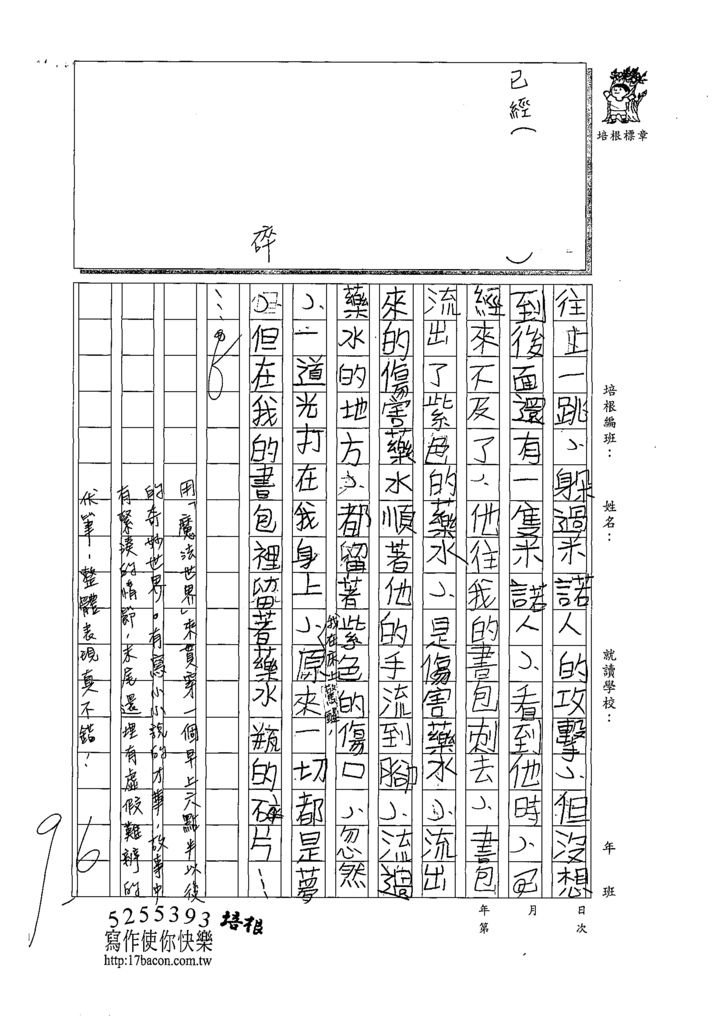 已經（　）
碎
培根標章
培根編班：　姓名：　就讀學校：　年　班
年　月　日
第　次
往上一跳，躲過米諾人的攻擊，但沒想
到後面還有一隻米諾人，看到他時，已
經來不及了，他往我的書包刺去，書包
流出了紫色的藥水，是傷害藥水，流出
來的傷害藥水順著他的手流到腳，流過
藥水的地方，都留著紫色的傷口，忽然
，一道光打在我身上，原來一切都是夢
我在床上驚醒，
，但在我的書包裡留著藥水瓶的碎片…
…。
用「魔法世界」來貫穿一個早上六點半以後
的奇妙世界。有寫小小說的才華，故事中
有緊湊的情節，末尾還埋有虛假難辨的
伏筆，整體表現真不錯！
96
5255393 培根
寫作使你快樂
http:17bacon.com.tw